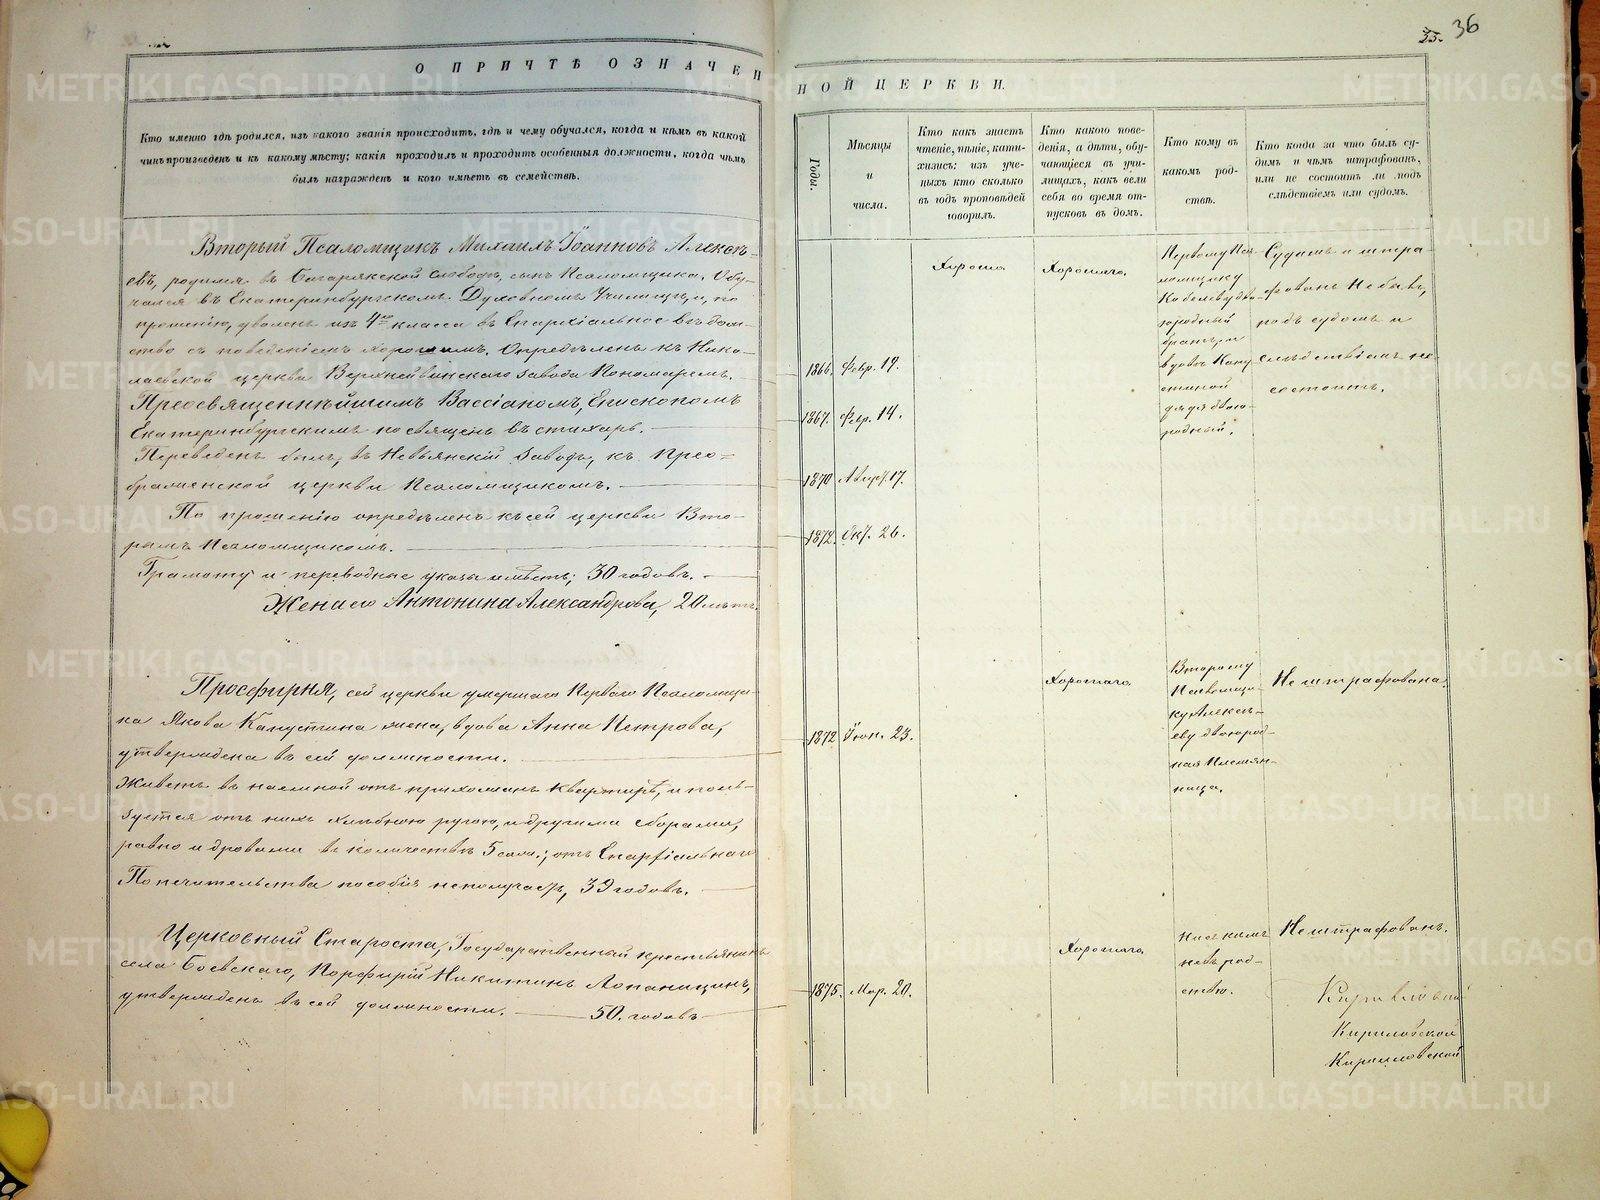 35. 36
О ПРИЧТѢ ОЗНАЧЕН
НОЙ ЦЕРКВИ.
Кто именно гдѣ родился, изъ какого званія происходитъ, гдѣ и чему обучался, когда и кѣмъ въ какой
чинъ произведенъ и къ какому мѣсту; какія проходилъ и проходитъ особенныя должности, когда чѣмъ
былъ награжденъ и кого имѣетъ въ семействѣ.
Вторый Псаломщикъ Михаилъ Іоанновъ Алексѣ-
евъ, родился въ Багарякской слободѣ, сынъ Псаломщика. Обу-
чался въ Екатеринбургскомъ Духовномъ Училищѣ, и, по
прошенію, уволенъ изъ 4го класса въ Епархіальное вѣдом-
ство съ поведеніемъ хорошимъ. Опредѣленъ къ Нико-
лаевской церкви Верхнейвинскаго завода Пономаремъ.
Преосвященнѣйшимъ Вассіаномъ, Епископомъ
Екатеринбургскимъ посвященъ въ стихарь.
Переведенъ былъ, въ Невьянскій заводъ, къ Прео-
браженской церкви Псаломщикомъ.
По прошенію опредѣленъ къ сей церкви Вто-
рымъ Псаломщикомъ.
Грамоту и переводные указы имѣетъ; 30 годовъ.
Жена его Антонина Александрова, 20 лѣтъ.
Просфирня, сей церкви умершаго Перваго Псаломщи-
ка Якова Капустина жена, вдова Анна Петрова,
утверждена въ сей должности.
Живетъ въ наемной отъ прихожанъ квартирѣ, и поль-
зуется отъ нихъ хлѣбною ругою, и другими сборами,
равно и дровами въ количествѣ 5 саж.; отъ Епархіальнаго
Попечительства пособія неполучаетъ, 39 годовъ.
Церковный Староста, Государственный крестьянинъ
села Боевскаго, Порфирій Никитинъ Лопаницинъ,
утвержденъ въ сей должности. 50. годовъ
Годы.
Мѣсяцы
и
числа.
Кто какъ знаетъ
чтеніе, пѣніе, кати-
хизисъ: изъ уче-
ныхъ кто сколько
въ годъ проповѣдей
говорилъ.
Кто какого пове-
денія, а дѣти, обу-
чающіеся въ учи-
лищахъ, какъ вели
себя во время от-
пусковъ въ домъ.
Кто кому въ
какомъ род-
ствѣ.
Кто когда за что былъ су-
димъ и чѣмъ штрафованъ,
или не состоитъ ли подъ
слѣдствіемъ или судомъ.
1866. Февр. 17.
1867. Февр. 14.
1870 Август. 17.
1872. Окт. 26.
Хорошо.
Хорошаго.
Первому Пса-
ломщику
двою-
родный
братъ, и
вдовѣ Капу
стиной
дядя двою-
родный.
Судимъ и штра-
фованъ Небылъ,
подъ судомъ и
слѣдствіемъ не
состоитъ.
1872 Іюн. 23.
Хорошаго.
Второму
Псаломщи-
ку Алексѣ-
еву двоюрод-
ная Племян-
ница.
Нештрафована.
1875. Мар. 20.
Хорошаго.
Ни съ кѣмъ
невъ род-
ствѣ.
Нештрафованъ.
Кириловской